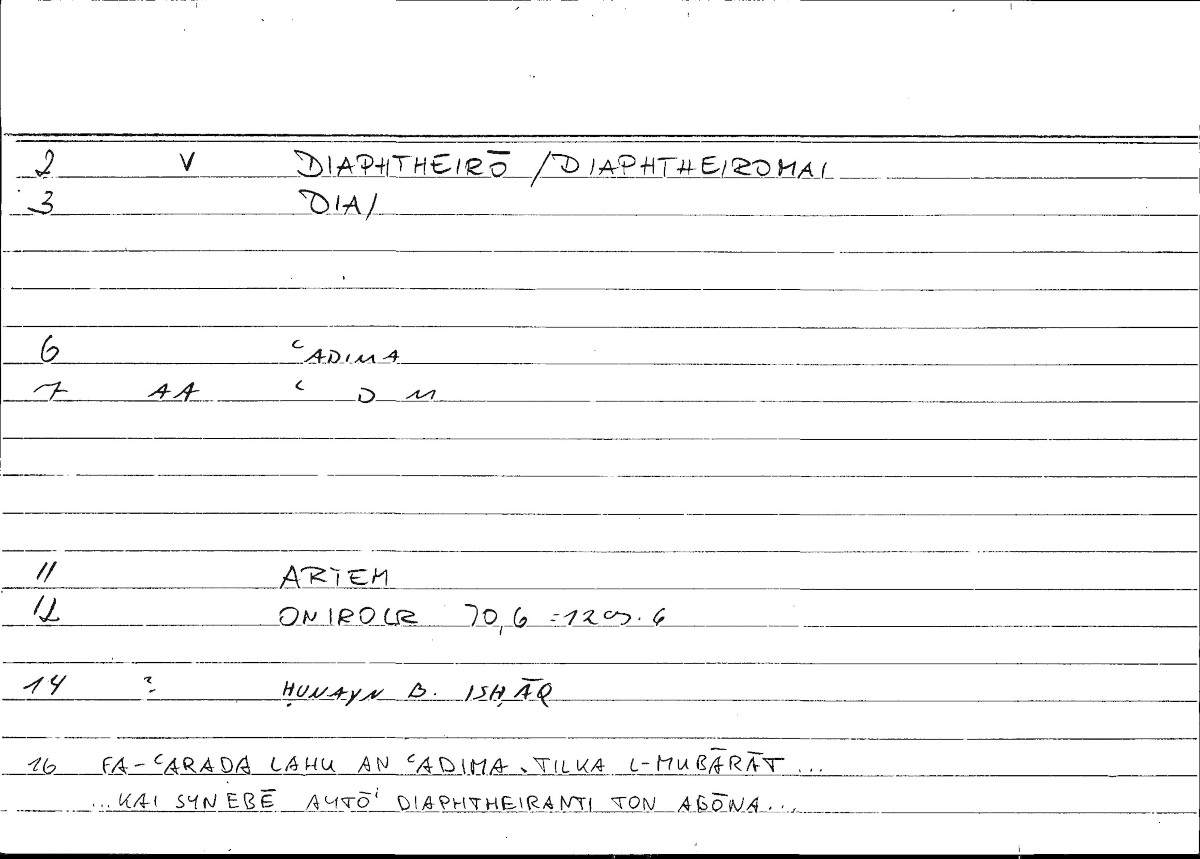 2 V DIAPHTHEIRŌ / DIAPHTHEIROMAI
3 DIA/
6 ʿADIMA
7 AA ʿ D M
11 ARTEM
12 ONIROCR 70,6 = 129.6
14 ? ḤUNAYN B. ISḤĀQ
16 FA-ʿARADA LAHU AN ʿADIMA TILKA L-MUBĀRĀT ...
...KAI SYNEBĒ AYTŌ DIAPHTHEIRANTI TON AGŌNA...